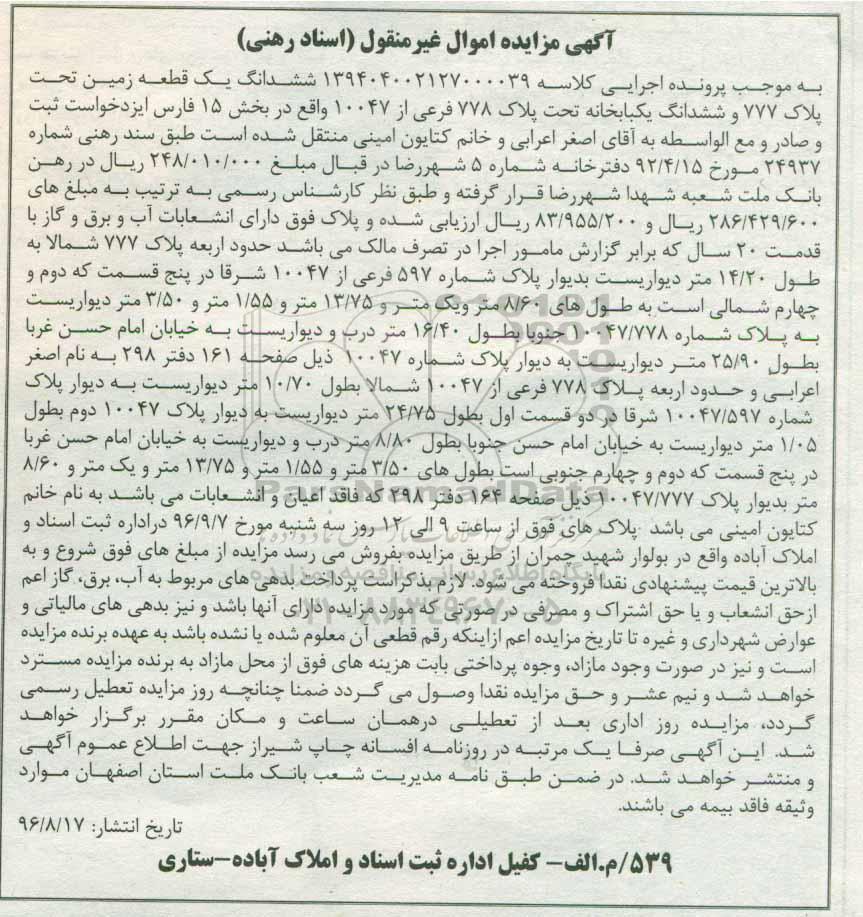 آگهی مزایده اموال غیرمنقول (اسناد رهنی)
به موجب پرونده اجرایی کلاسه ۱۳۹۴۰۴۰۰۲۱۲۷۰۰۰۰۳۹ ششدانگ یک قطعه زمین تحت
پلاک ۷۷۷ و ششدانگ یکبابخانه تحت پلاک ۷۷۸ فرعی از ۱۰۰۴۷ واقع در بخش ۱۵ فارس ایزدخواست ثبت
و صادر و مع الواسطه به آقای اصغر اعرابی و خانم کتایون امینی منتقل شده است طبق سند رهنی شماره
۲۴۹۳۷ مورخ ۹۲/۴/۱۵ دفترخانه شماره ۵ شهررضا در قبال مبلغ ۲۴۸/۰۱۰/۰۰۰ ریال در رهن
بانک ملت شعبه شهدا شهررضا قرار گرفته و طبق نظر کارشناس رسمی به ترتیب به مبلغ های
۲۸۶/۴۲۹/۶۰۰ ریال و ۸۳/۹۵۵/۲۰۰ ریال ارزیابی شده و پلاک فوق دارای انشعابات آب و برق و گاز با
قدمت ۲۰ سال که برابر گزارش مامور اجرا در تصرف مالک می باشد حدود اربعه پلاک ۷۷۷ شمالا به
طول ۱۴/۲۰ متر دیواریست بدیوار پلاک شماره ۵۹۷ فرعی از ۱۰۰۴۷ شرقا در پنج قسمت که دوم و
چهارم شمالی است به طول های ۸/۶۰ متر ویک متر و ۱۳/۷۵ متر و ۱/۵۵ متر و ۳/۵۰ متر دیواریست
به پلاک شماره ۱۰۰۴۷/۷۷۸ جنوبا بطول ۱۶/۴۰ متر درب و دیواریست به خیابان امام حسن غربا
بطول ۲۵/۹۰ متر دیواریست به دیوار پلاک شماره ۱۰۰۴۷ ذیل صفحه ۱۶۱ دفتر ۲۹۸ به نام اصغر
اعرابی و حدود اربعه پلاک ۷۷۸ فرعی از ۱۰۰۴۷ شمالا بطول ۱۰/۷۰ متر دیواریست به دیوار پلاک
شماره ۱۰۰۴۷/۵۹۷ شرقا در دو قسمت اول بطول ۲۴/۷۵ متر دیواریست به دیوار پلاک ۱۰۰۴۷ دوم بطول
۱/۰۵ متر دیواریست به خیابان امام حسن جنوبا بطول ۸/۸۰ متر درب و دیواریست به خیابان امام حسن غربا
در پنج قسمت که دوم و چهارم جنوبی است بطول های ۳/۵۰ متر و ۱/۵۵ متر و ۱۳/۷۵ متر و یک متر و ۸/۶۰
متر بدیوار پلاک ۱۰۰۴۷/۷۷۷ ذیل صفحه ۱۶۴ دفتر ۲۹۸ که فاقد اعیان و انشعابات می باشد به نام خانم
کتایون امینی می باشد پلاک های فوق از ساعت ۹ الی ۱۲ روز سه شنبه مورخ ۹۶/۹/۷ دراداره ثبت اسناد و
املاک آباده واقع در بولوار شهید چمران از طریق مزایده بفروش می رسد مزایده از مبلغ های فوق شروع و به
بالاترین قیمت پیشنهادی نقدا فروخته می شود. لازم بذکراست پرداخت بدهی های مربوط به آب، برق، گاز اعم
ازحق انشعاب و یا حق اشتراک و مصرفی در صورتی که مورد مزایده دارای آنها باشد و نیز بدهی های مالیاتی و
عوارض شهرداری و غیره تا تاریخ مزایده اعم ازاینکه رقم قطعی آن معلوم شده یا نشده باشد به عهده برنده مزایده
است و نیز در صورت وجود مازاد، وجوه پرداختی بابت هزینه های فوق از محل مازاد به برنده مزایده مسترد
خواهد شد و نیم عشر و حق مزایده نقدا وصول می گردد ضمنا چنانچه روز مزایده تعطیل رسمی
گردد، مزایده روز اداری بعد از تعطیلی درهمان ساعت و مکان مقرر برگزار خواهد
شد. این آگهی صرفا یک مرتبه در روزنامه افسانه چاپ شیراز جهت اطلاع عموم آگهی
و منتشر خواهد شد. در ضمن طبق نامه مدیریت شعب بانک ملت استان اصفهان موارد
وثیقه فاقد بیمه می باشند.
تاریخ انتشار: ۹۶/۸/۱۷
۵۳۹/م.الف- کفیل اداره ثبت اسناد و املاک آباده-ستاری
ParsNamadData
۰۲۱-۸۸۳۴۹۶۷۰-۵